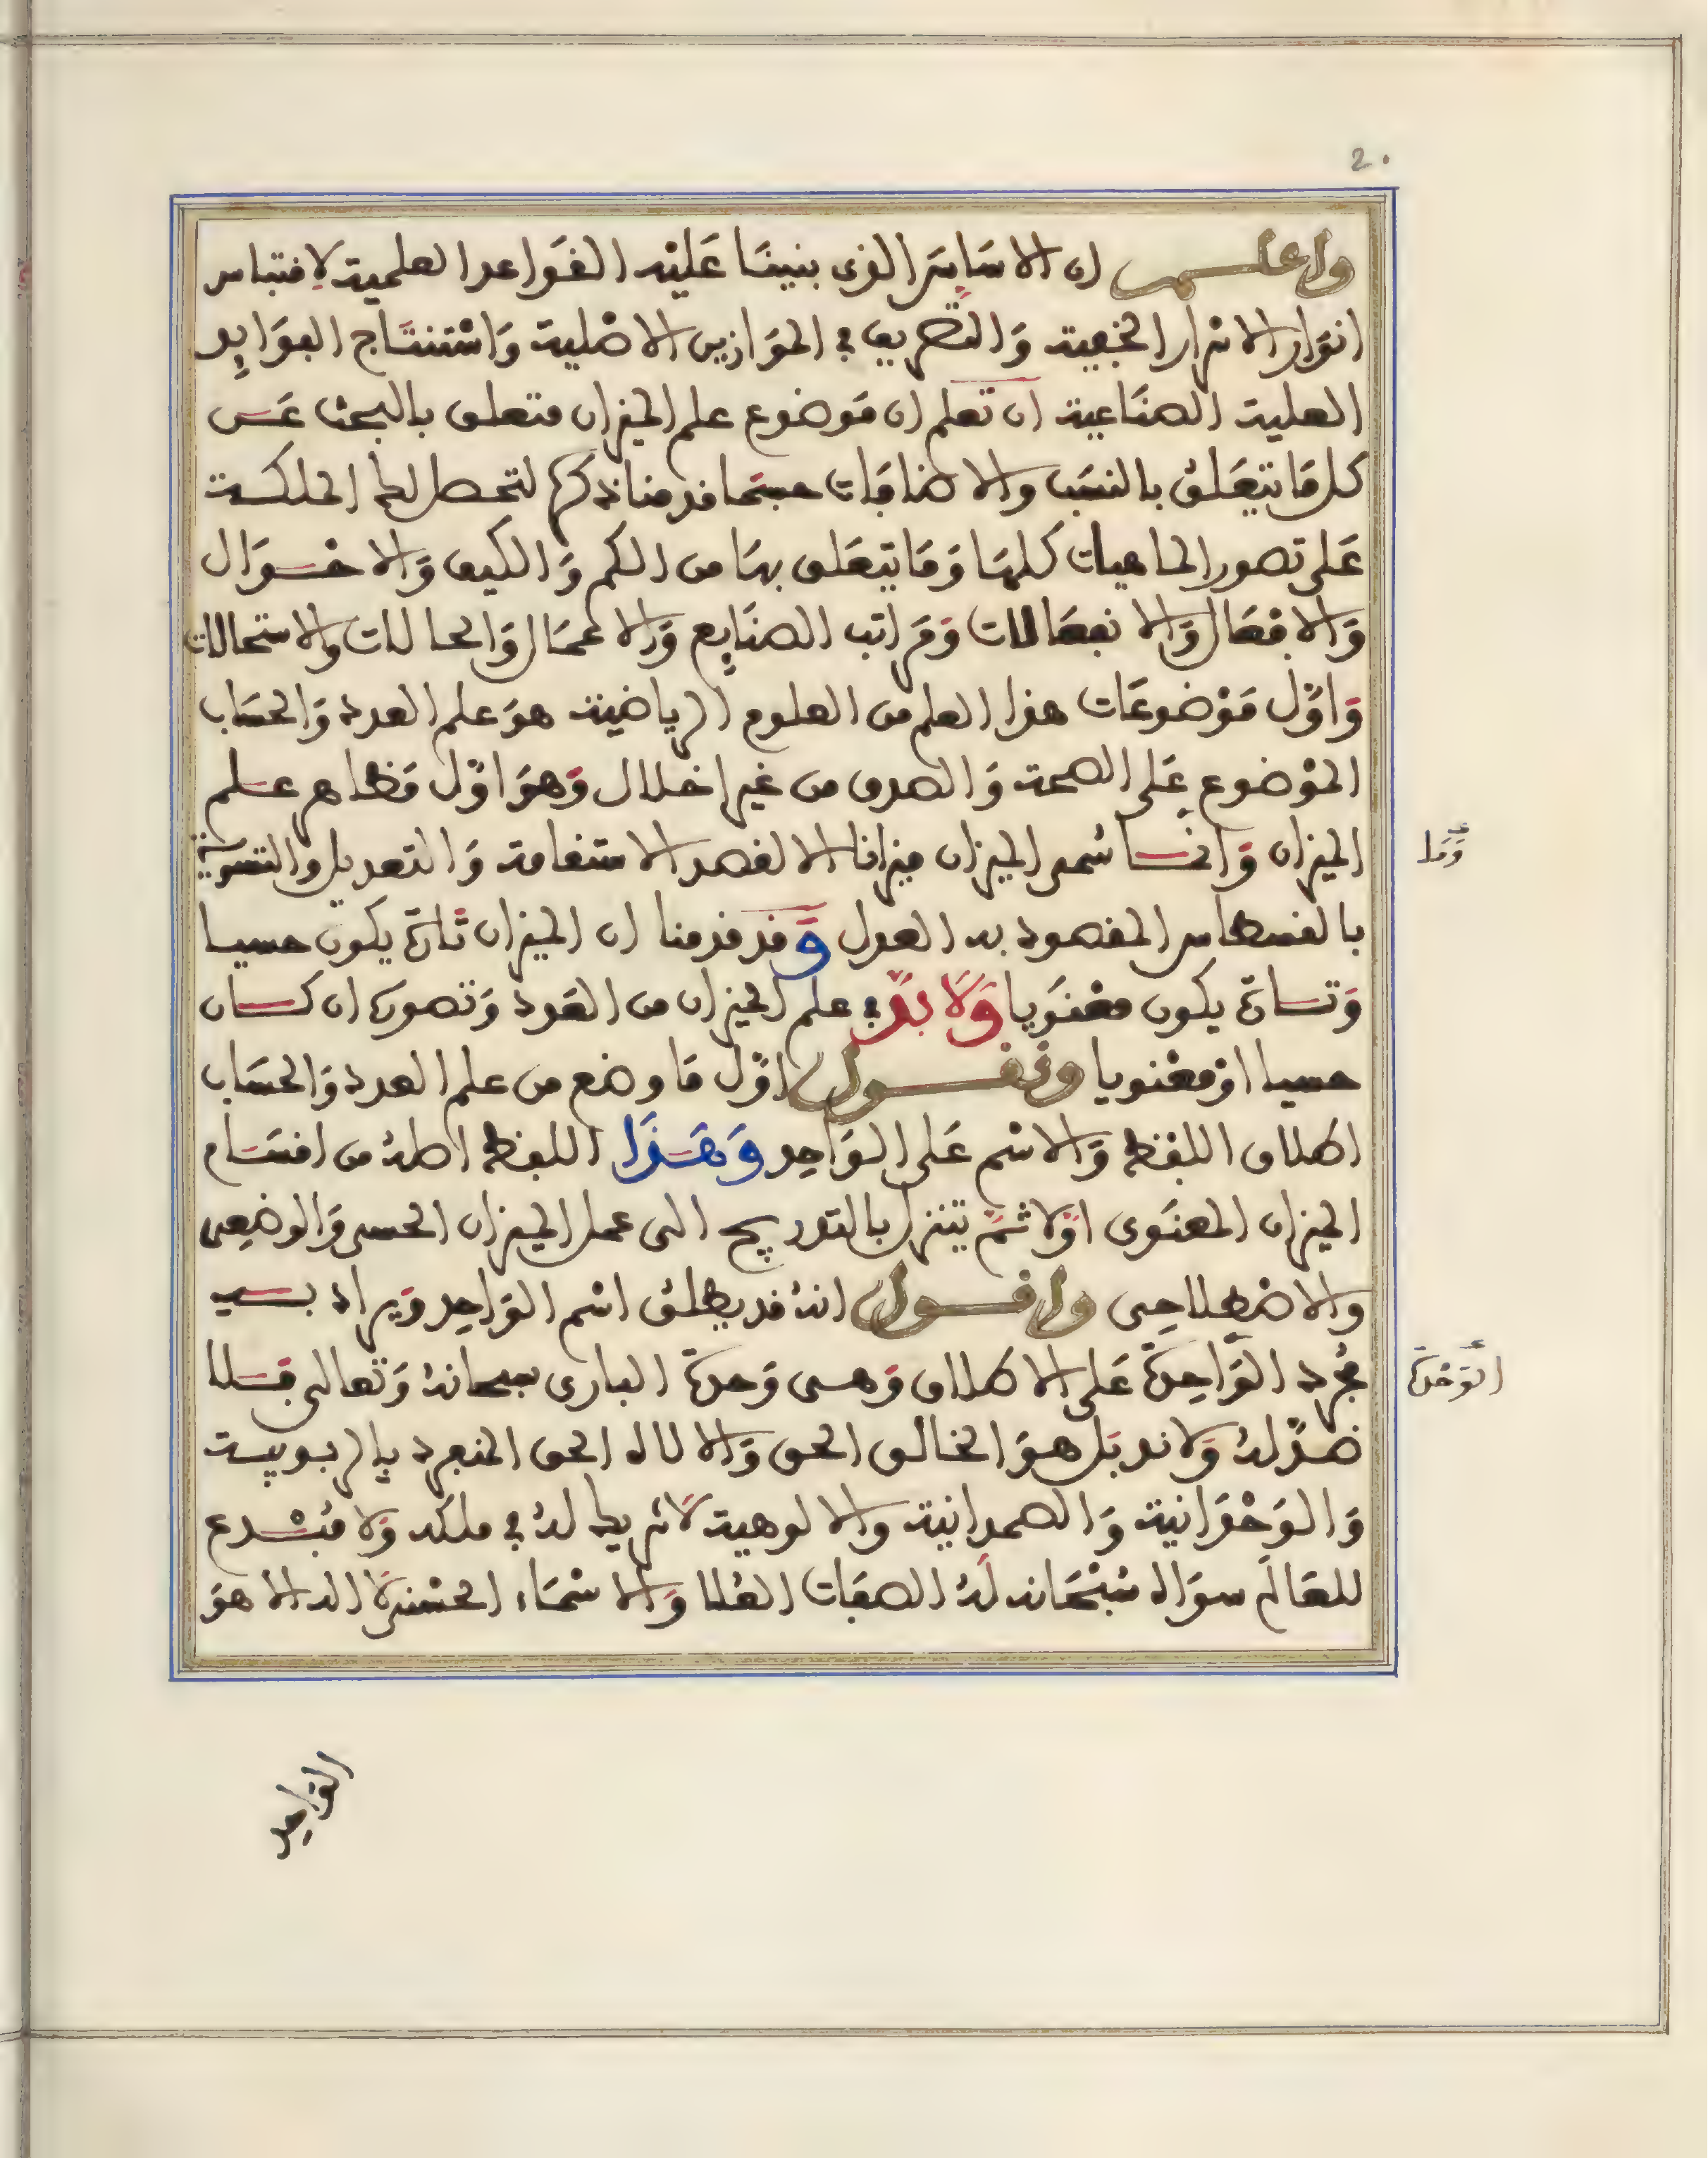 20
واعلم ان الاساس الذى بنينا عليه القواعد العلمية لاقتباس
انوار الاسرار الخفية والتصريف فى الموازين الاصلية واستنتاج الفوايد
العلية الصناعية ان تعلم ان موضوع علم الميزان متعلق بالبحث عن
كل ما يتعلق بالنسب والاضافات حسبما قدمنا ذكره لتحصل لك الملكة
على تصور الماهيات كلها وما يتعلق بها من الكم والكيف والاحوال
والافعال والانفعالات ومراتب الصنايع والاعمال والحالات والاستحالات
واول موضوعات هذا العلم من العلوم الرياضية هو علم العدد والحساب
الموضوع على الصحة والصدق من غير اخلال وهو اول مظاهر علم
الميزان وانما سمى الميزان ميزانا الا لقصد الاستقامة والتعديل والتسوية
وما
بالقسطاس المقصود به العدل وقد قدمنا ان الميزان تارة يكون حسيا
وتارة يكون معنويا ولابد فى علم الميزان من العدد وتصوره ان كان
حسيا او معنويا ونقول اول ما وضع من علم العدد والحساب
اطلاق اللفظ والاسم على الواحد وهذا اللفظ اصله من اقسام
الميزان المعنوى اولا ثم يتنزل بالتدريج الى عمل الميزان الحسى والوضعى
والاصطلاحى واقول انه قد يطلق اسم الواحد ويراد به
مجرد الواحدة على الاطلاق وهى وحدة البارى سبحانه وتعالى فلا
الوحدة
ضد له ولا ند بل هو الخالق الحق والالاه الحق المنفرد بالربوبية
والوحدانية والصمدانية والالوهية لا شريك له فى ملكه ولا مبدع
للعالم سواه سبحانه له الصفات العلا والاسماء الحسنى لا اله الا هو
الواحد